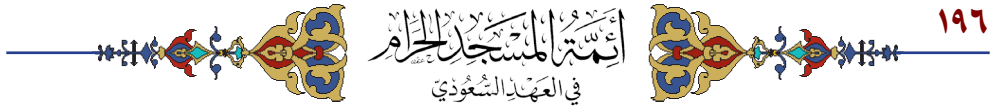 ١٩٦
أَئِمَّةُ المَسْجِدِ الحَرَامِ
فِي العَهْدِ السُّعُودِيّ